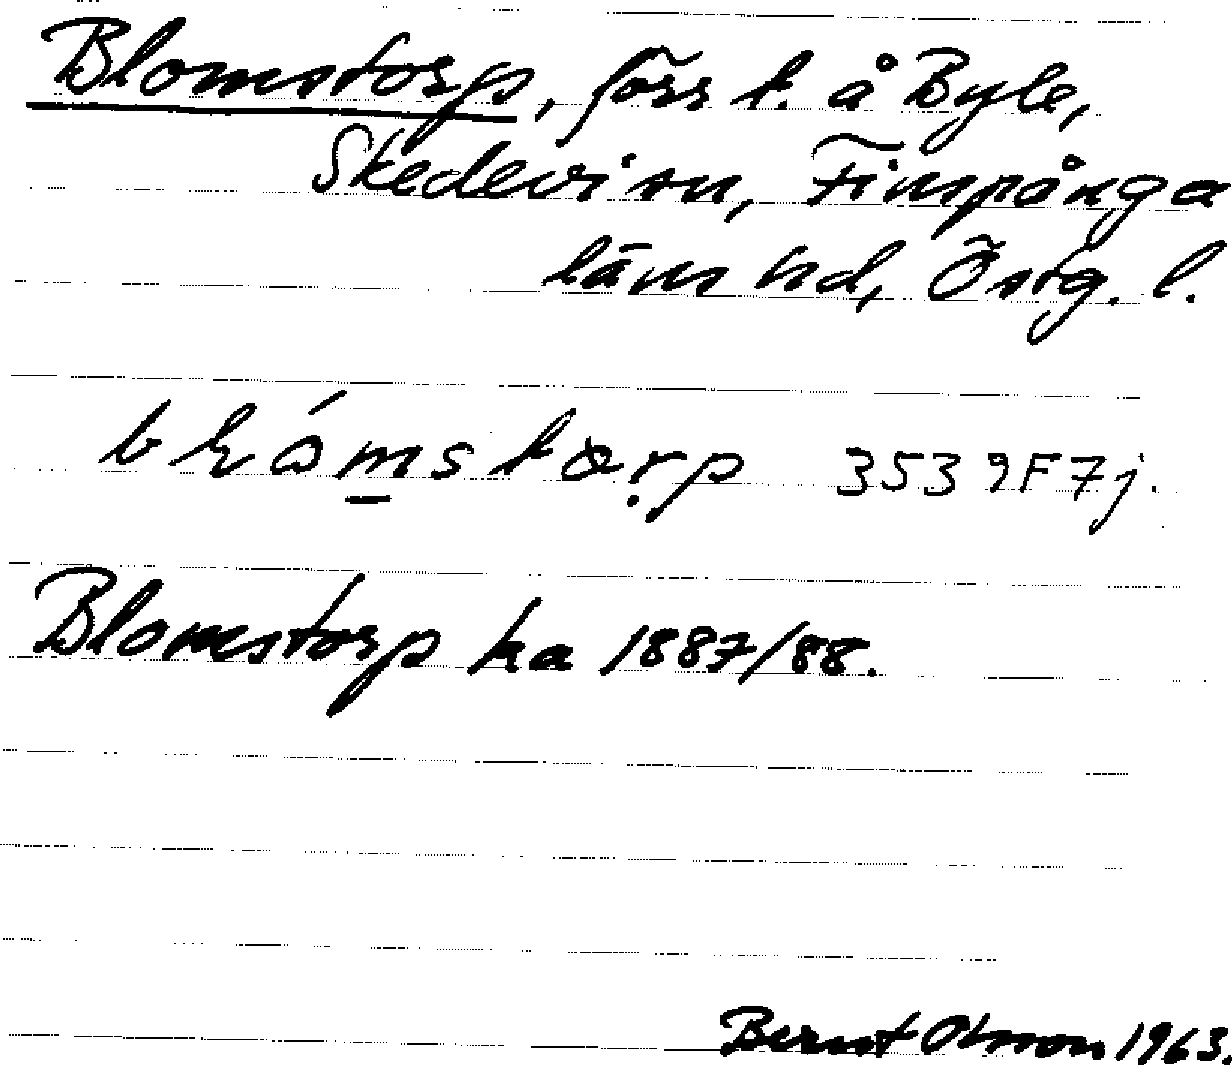 Blomstorp, förr t. å Byle,
Skedevi sn, Finspånga
läns hd, Östg. l.
3539F7j.
Blomstorp ka 1887/88.
Bernt Olsson 1963.